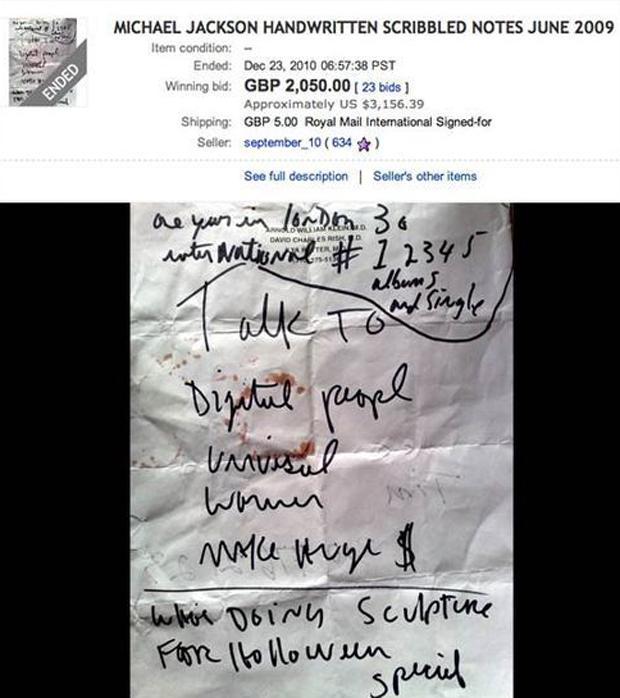 MICHAEL JACKSON HANDWRITTEN SCRIBBLED NOTES JUNE 2009
Item condition: --
Ended: Dec 23, 2010 06:57:38 PST
Winning bid: GBP 2,050.00 [ 23 bids ]
Approximately US $3,156.39
Shipping: GBP 5.00 Royal Mail International Signed-for
Seller: september_10 ( 634 )
See full description | Seller's other items
ENDED
in London 30
ARNOLD WILLIAM KLEIN, M.D.
DAVID CHARLES RISH, M.D.
international # 1 2345
albums
and Single
Talk TO
Digital peopl
univisal
Warner
Make Huge $
DOING Sculpture
FOR Halloween
special